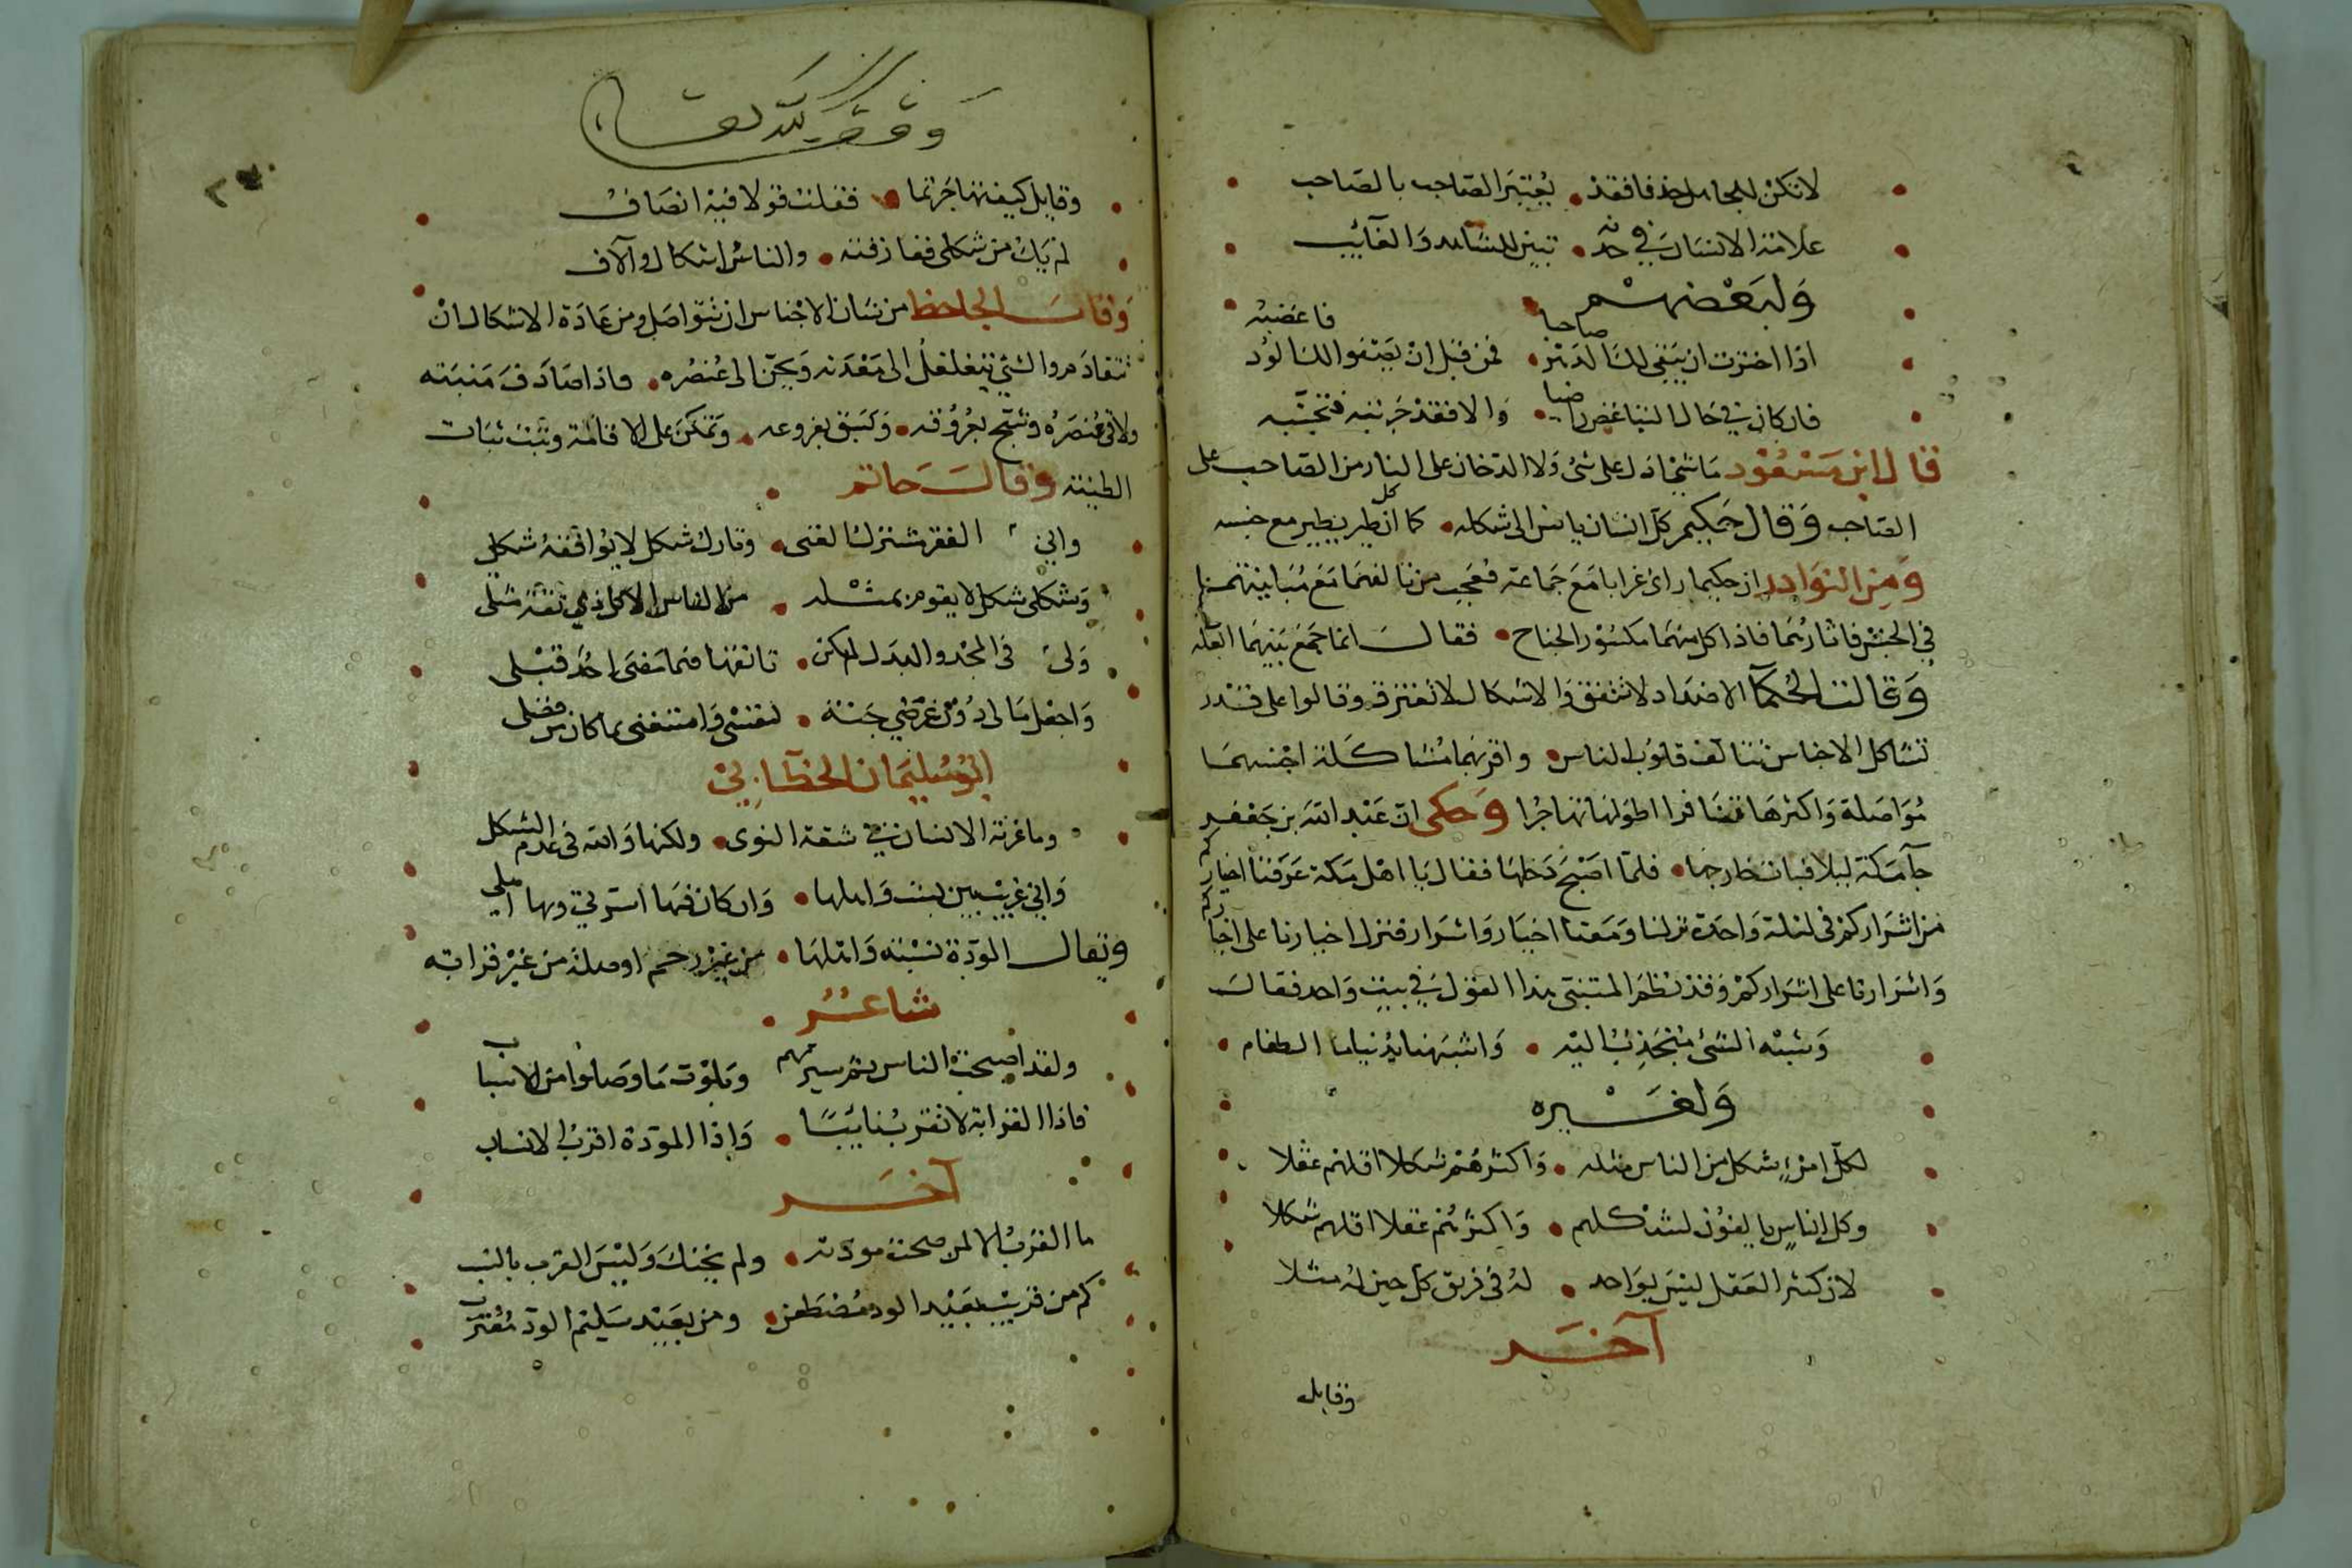 لا تكن للجاهل خدنا فقد يعتبر الصاحب بالصاحب
علامة الانسان في خدنه تبين للشاهد والغائب
ولبعضهم
اذا اخترت ان يبقى لك الدهر صاحبا فمن قبل ان يصفو لك الود فاغضبه
فان كان في حال التباغض راضيا والا فقد جربته فتجنبه
قال ابن مسعود ما شيء ادل على شئ ولا الدخان على النار من الصاحب على
الصاحب وقال حكيم كل انسان يانس الى شكله كما ان كل طير يطير مع جنسه
ومن النوادر ان حكيما راى غرابا مع جماعة فعجب من تالفهما مع مباينتهما
في الجنس فاثارهما فاذا كل منهما مكسور الجناح فقال انما جمع بينهما العلة
وقالت الحكما الاضداد لا تتفق والاشكال لا تفترق وقالوا على قدر
تشاكل الاجناس تتالف قلوب الناس واقربهما مشاكلة احسنهما
مواصلة واكثرها تضافرا اطولها تهاجرا وحكى ان عبد الله بن جعفر
جآ مكة ليلا فبات خارجها فلما اصبح دخلها فقال يا اهل مكة عرفنا اخياركم
من اشراركم في ليلة واحدة نزلنا ومعنا اخيار واشرار فنزل اخيارنا على اخياركم
واشرارنا على اشراركم وقد نظم المتنبى هذا القول في بيت واحد فقال
وشبه الشئ منجذب اليه واشبهنا بدنيانا الطغام
ولغيره
لكل امرئ شكل من الناس مثله واكثرهم شكلا اقلهم عقلا
وكل اناس يالفون لشكلهم واكثرهم عقلا اقلهم شكلا
لان كثير العقل ليس بواحد له في فريق كل حين له مثلا
آخر
وقايل
وقف لله تعالى
وقايل كيف تهاجرتما فقلت قولا فيه انصاف
لم يك من شكلى ففارقته والناس اشكال وآلاف
وقال الجاحظ من شان الاجناس ان تتواصل ومن عادة الاشكال ان
تتقادم والشئ يتغلغل الى معدنه ويحن الى عنصره فاذا صادف منبته
ولاقى عنصره وشج بعروقه وبسق بفروعه وتمكن على الاقامة وثبت ثبات
الطينة وقال حاتم
وانى الفقر مشترك الغنى وتارك شكل لا يوافقه شكلى
وشكلى شكل لا يقوم بمثله من الناس الا كل ذي ثقة مثلى
ولى في المجد والبذل لم يكن تانفها فيما مضى احد قبلى
واجعل مالى دون عرضي جنة لنفسى وامتنفنى بما كان من فضلى
ابو سليمان الخطابي
وما غربة الانسان في شقة النوى ولكنها والله في عدم الشكل
واني غريب بين بست واهلها وان كان فيها اسرتي وبها اهلي
ويقال المودة نسبته وامثلها من غير رحم اوصلة من غير قرابته
شاعر
ولقد صحبت الناس ثم سبرتهم وبلوت ما وصلوا من الاسباب
فاذا القرابة لا تقرب نائبا واذا المودة اقرب الانساب
آخر
ما القرب الا لمن صحت مودته ولم يخنك وليس القرب بالنسب
كم من قريب بعيد الود مضطغن ومن بعيد سليم الود مقترب